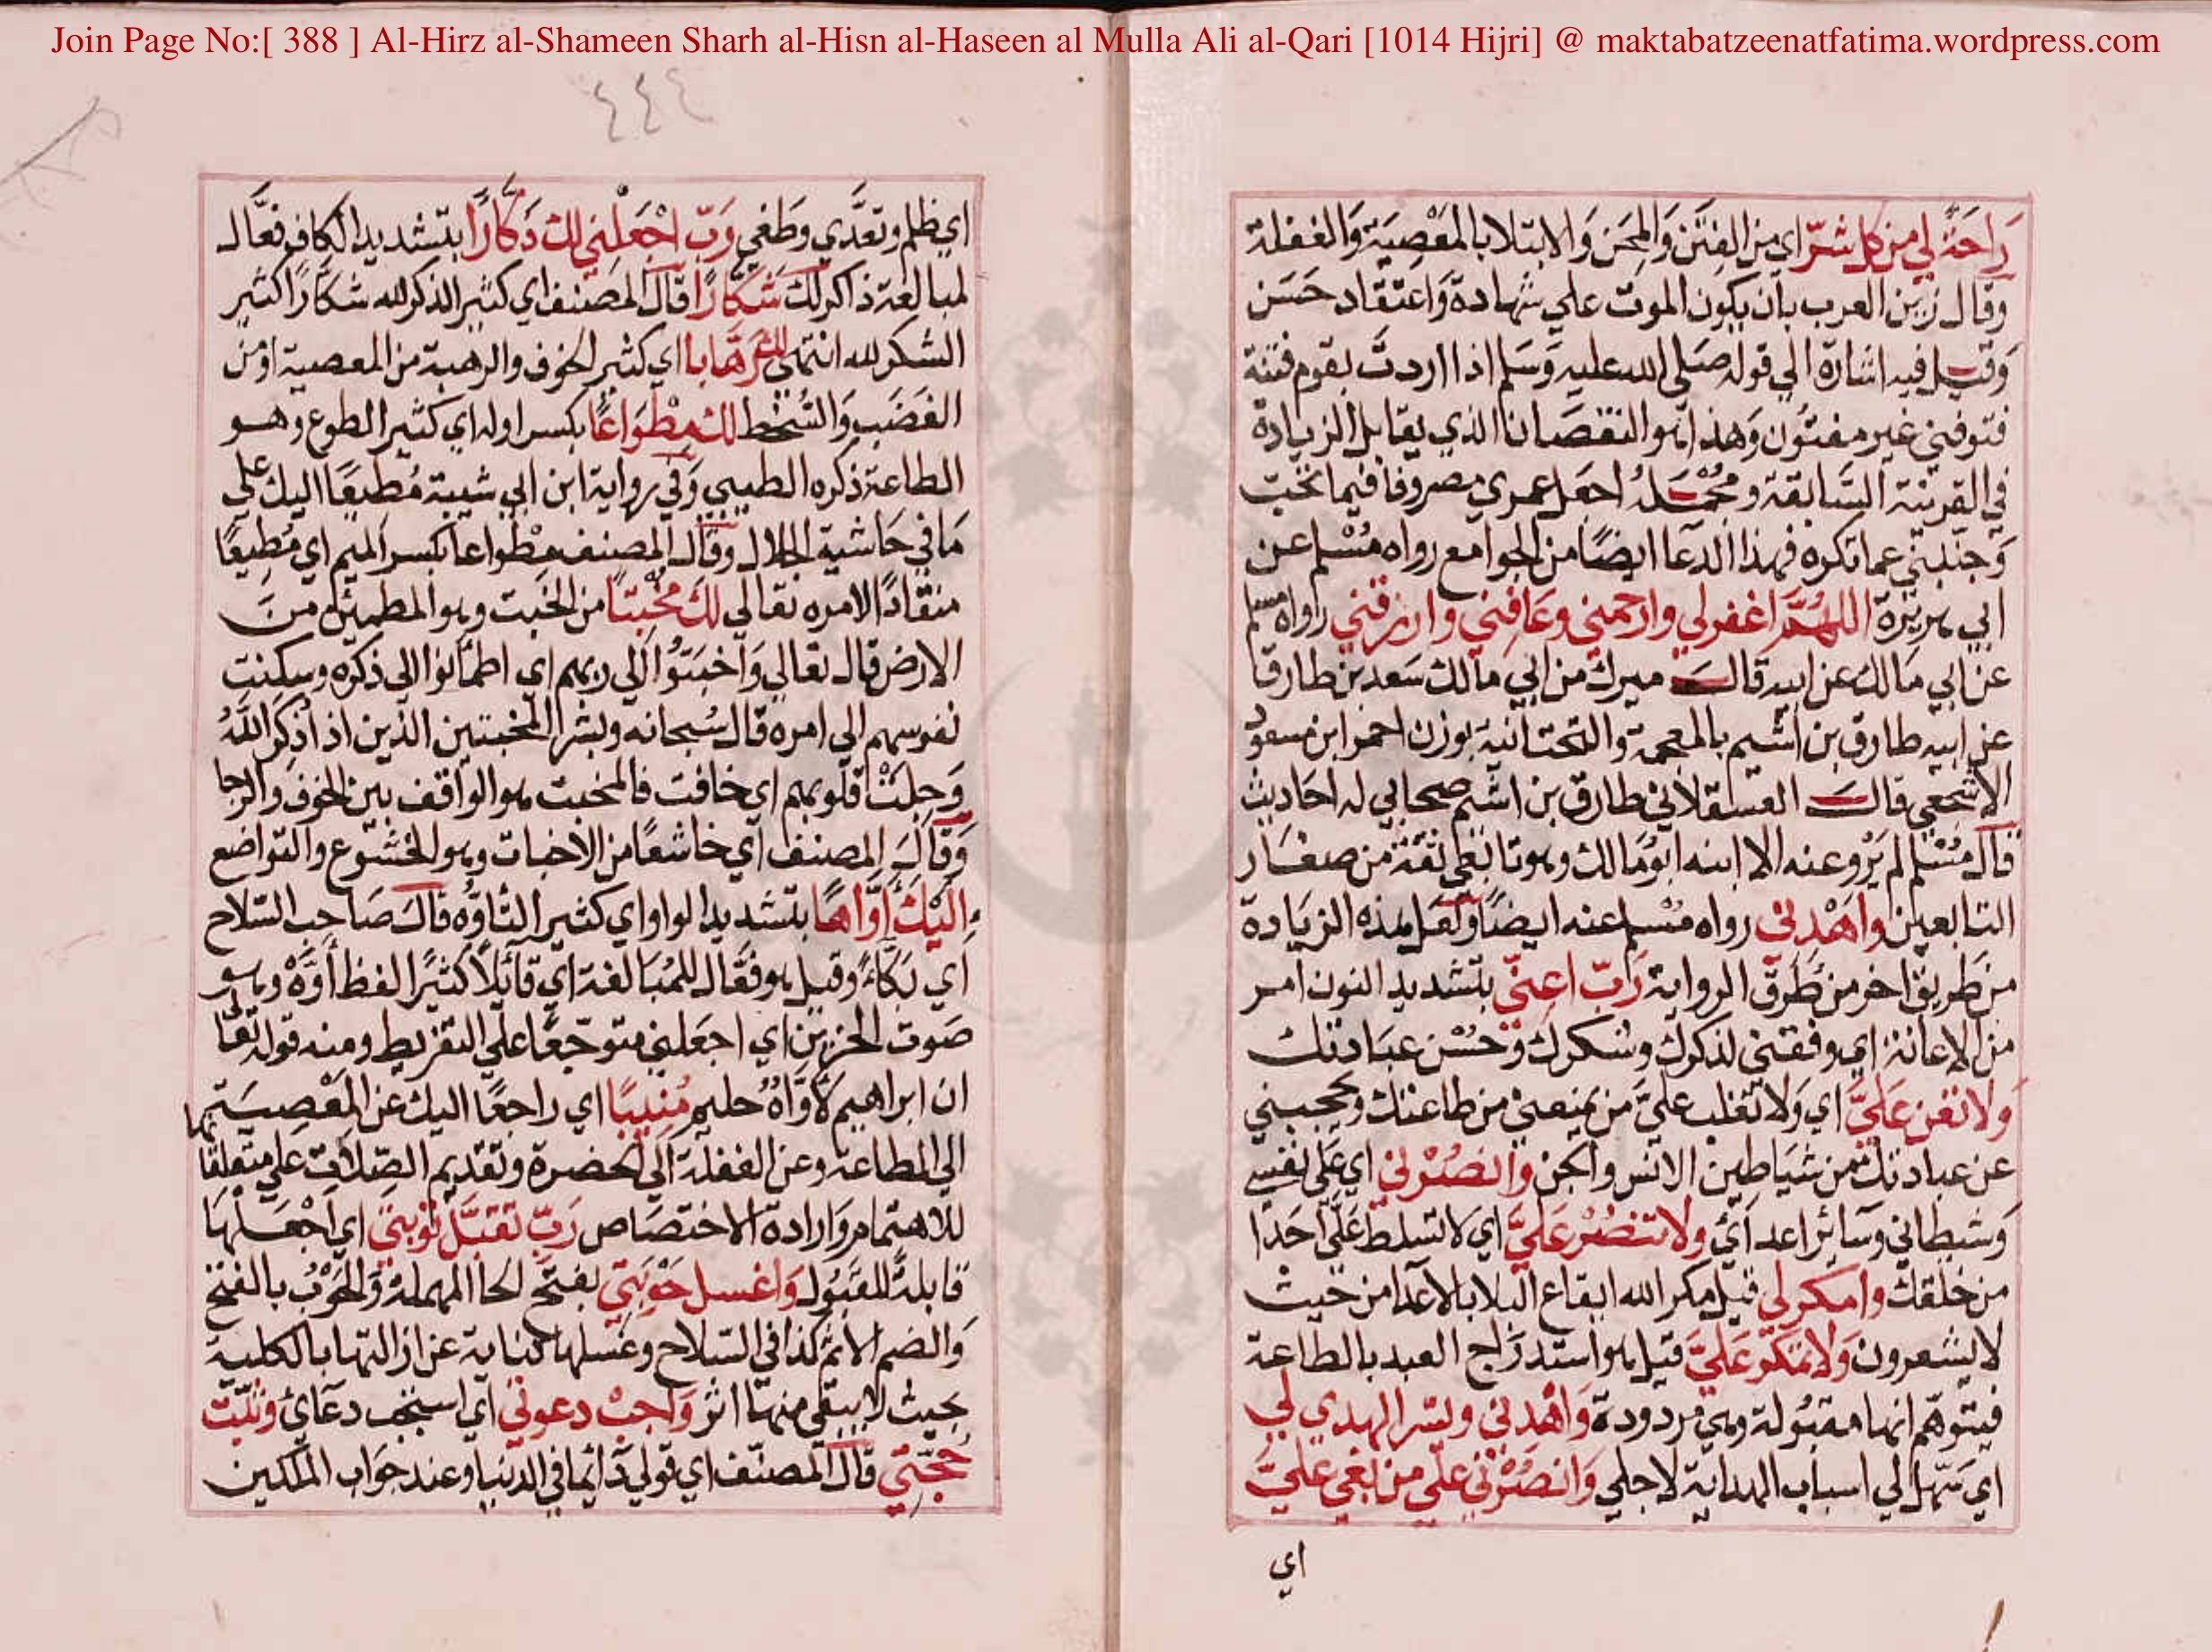 Join Page No:[ 388 ] Al-Hirz al-Shameen Sharh al-Hisn al-Haseen al Mulla Ali al-Qari [1014 Hijri] @ maktabatzeenatfatima.wordpress.com
راحَةً لي من كل شرّ اي من الفِتَن وَالمِحَن وَالابتلا بالمَعْصِيَة وَالغفلة
وقال زين العرب بان يكون الموت علي شهادة وَاعتقاد حَسَن
وَقيل فيه اشارة الي قوله صَلى الله عليه وَسَلم اذا اردتَّ بقوم فتنة
فتوفني غير مفتُون وَهذا هو النقصَان الذي يقابل الزيادة
في القرينة السَّابقة ومُحْمَلهُ اجعَل عمري مصروفا فيما تحبّ
وَجنّبني عما تكره فهذا الدعا ايضًا من الجوامع رواه مُسْلم عن
ابي هريرة اللهُمَّ اغفر لي وارحمني وعَافني وارزقني رواه مسلم
عن ابي مَالك عن ابيه قال ميرك من ابي مالك سَعد بن طارق
عن ابيه طارق بن اشيم بالمعجمة والتحتانية بوزن احمر ابن مسعود
الاشجعي قال العسقلاني طارق بن اشيم صحابي له احاديث
قال مُسْلم لم يَرْو عنه الا ابنه ابُو مَالك وهو تابعي ثقة من صغَار
التابعين واهْدني رواه مُسْلم عنه ايضًا وَلعَل هذه الزيَادة
من طريق اخر من طُرق الرواية رَبّ اعِنّي بتشديد النون امر
من الاعانة اي وفقني لذكرك وشكرك وَحُسْن عبَادتك
وَلا تعن عَليَّ اي وَلا تغلب عليَّ من يمنعني من طاعتك ويحجبني
عن عبادتك من شيَاطِين الانس والجن وانصُرْني اي عَلى نفسي
وَشيطاني وسَائر اعدائي ولا تنصُرْ عَليَّ اي لا تسلط عَليَّ احَدًا
من خلقك وامكر لي قيل مكر الله ايقاع البلا بالاعدا من حيث
لا يشعرون وَلا تمكر عَليَّ قيل هو استدرَاج العبد بالطاعة
فيتوهّم انها مقبُولة وهي مردودة وَاهْدني ويسّر الهدي لي
اي سَهّل لي اسباب الهداية لاجلي وَانصُرْني عَلى من بَغي عليَّ
اي
٤٤٤
اي ظلم وتعَدَّي وَطَغي وَرَبّ اجْعَلْني لك ذَكَّارًا بتشديد الكاف فعَّال
لمبالغة ذاكر لك شَكَّارًا قال المصَنف اي كثير الذكر لله شكَّارًا كثير
الشكر لله انتهى لك رَهَّابا اي كثير الخوف والرهبة من المعصية او من
الغضَب وَالسُّخط لك مِطْوَاعًا بكسر اوله اي كثير الطوع وهو
الطاعة ذكره الطيبي وَفي رواية ابن ابي شيبة مُطيعًا اليك علي
مَا في حَاشية الجلال وقَال المصنف مِطْواعا بكسر الميم اي مُطِيعًا
منقادًا لامره تعالي لكَ مُخْبِتًا من الخَبت وهو المطمئن منَ
الارض قال تعالي وَاخبَتوُا الي ربهم اي اطمأنوا الي ذكره وسكنت
نفوسهم الي امره قال سُبحانه وبشر المخبتين الذين اذا ذكر اللَّهُ
وَجِلَتْ قلوبهم اي خافت فالمخبت هو الواقف بين الخوف والرجا
وَقالَ المصنف اي خاشعًا من الاخبات وهو الخشوع والتواضع
إليْكَ أوَّاهًا بتشديد الواو اي كثير التأوُّه قالَ صَاحب السّلاح
اي بَكَّاءً وقيل هو فعَّال للمُبَالغة اي قائلًا كثيرًا لفظ أوَّهْ وهو
صَوت الحَزين اي اجعَلني متوجّعًا علي التفريط ومنه قوله تعالي
ان ابراهيم لأوَّاهٌ حليم مُنِيبًا اي راجعًا اليك عن المَعْصِيَة
الي الطاعة وعن الغفلة الي الحضرة وتقديم الصّلات علي متعلقاتها
للاهتمَام وَارادة الاختصَاص رَبّ تقبَّل توبتي اي اجْعَلْهَا
قابلة للقَبُول وَاغسل حَوْبَتي بفتح الحا المهملة وَالحَوْبُ بالفتح
وَالضم الاثم كذا في السّلاح وغسلها كناية عن ازالتها بالكلية
بحيث لا يبقي منهَا اثر وَاجبْ دعوتي اي استجب دعَائي وثبّت
حُجّتي قال المصنّف اي قولي دَائما في الدنيا وعند جوَاب الملكين